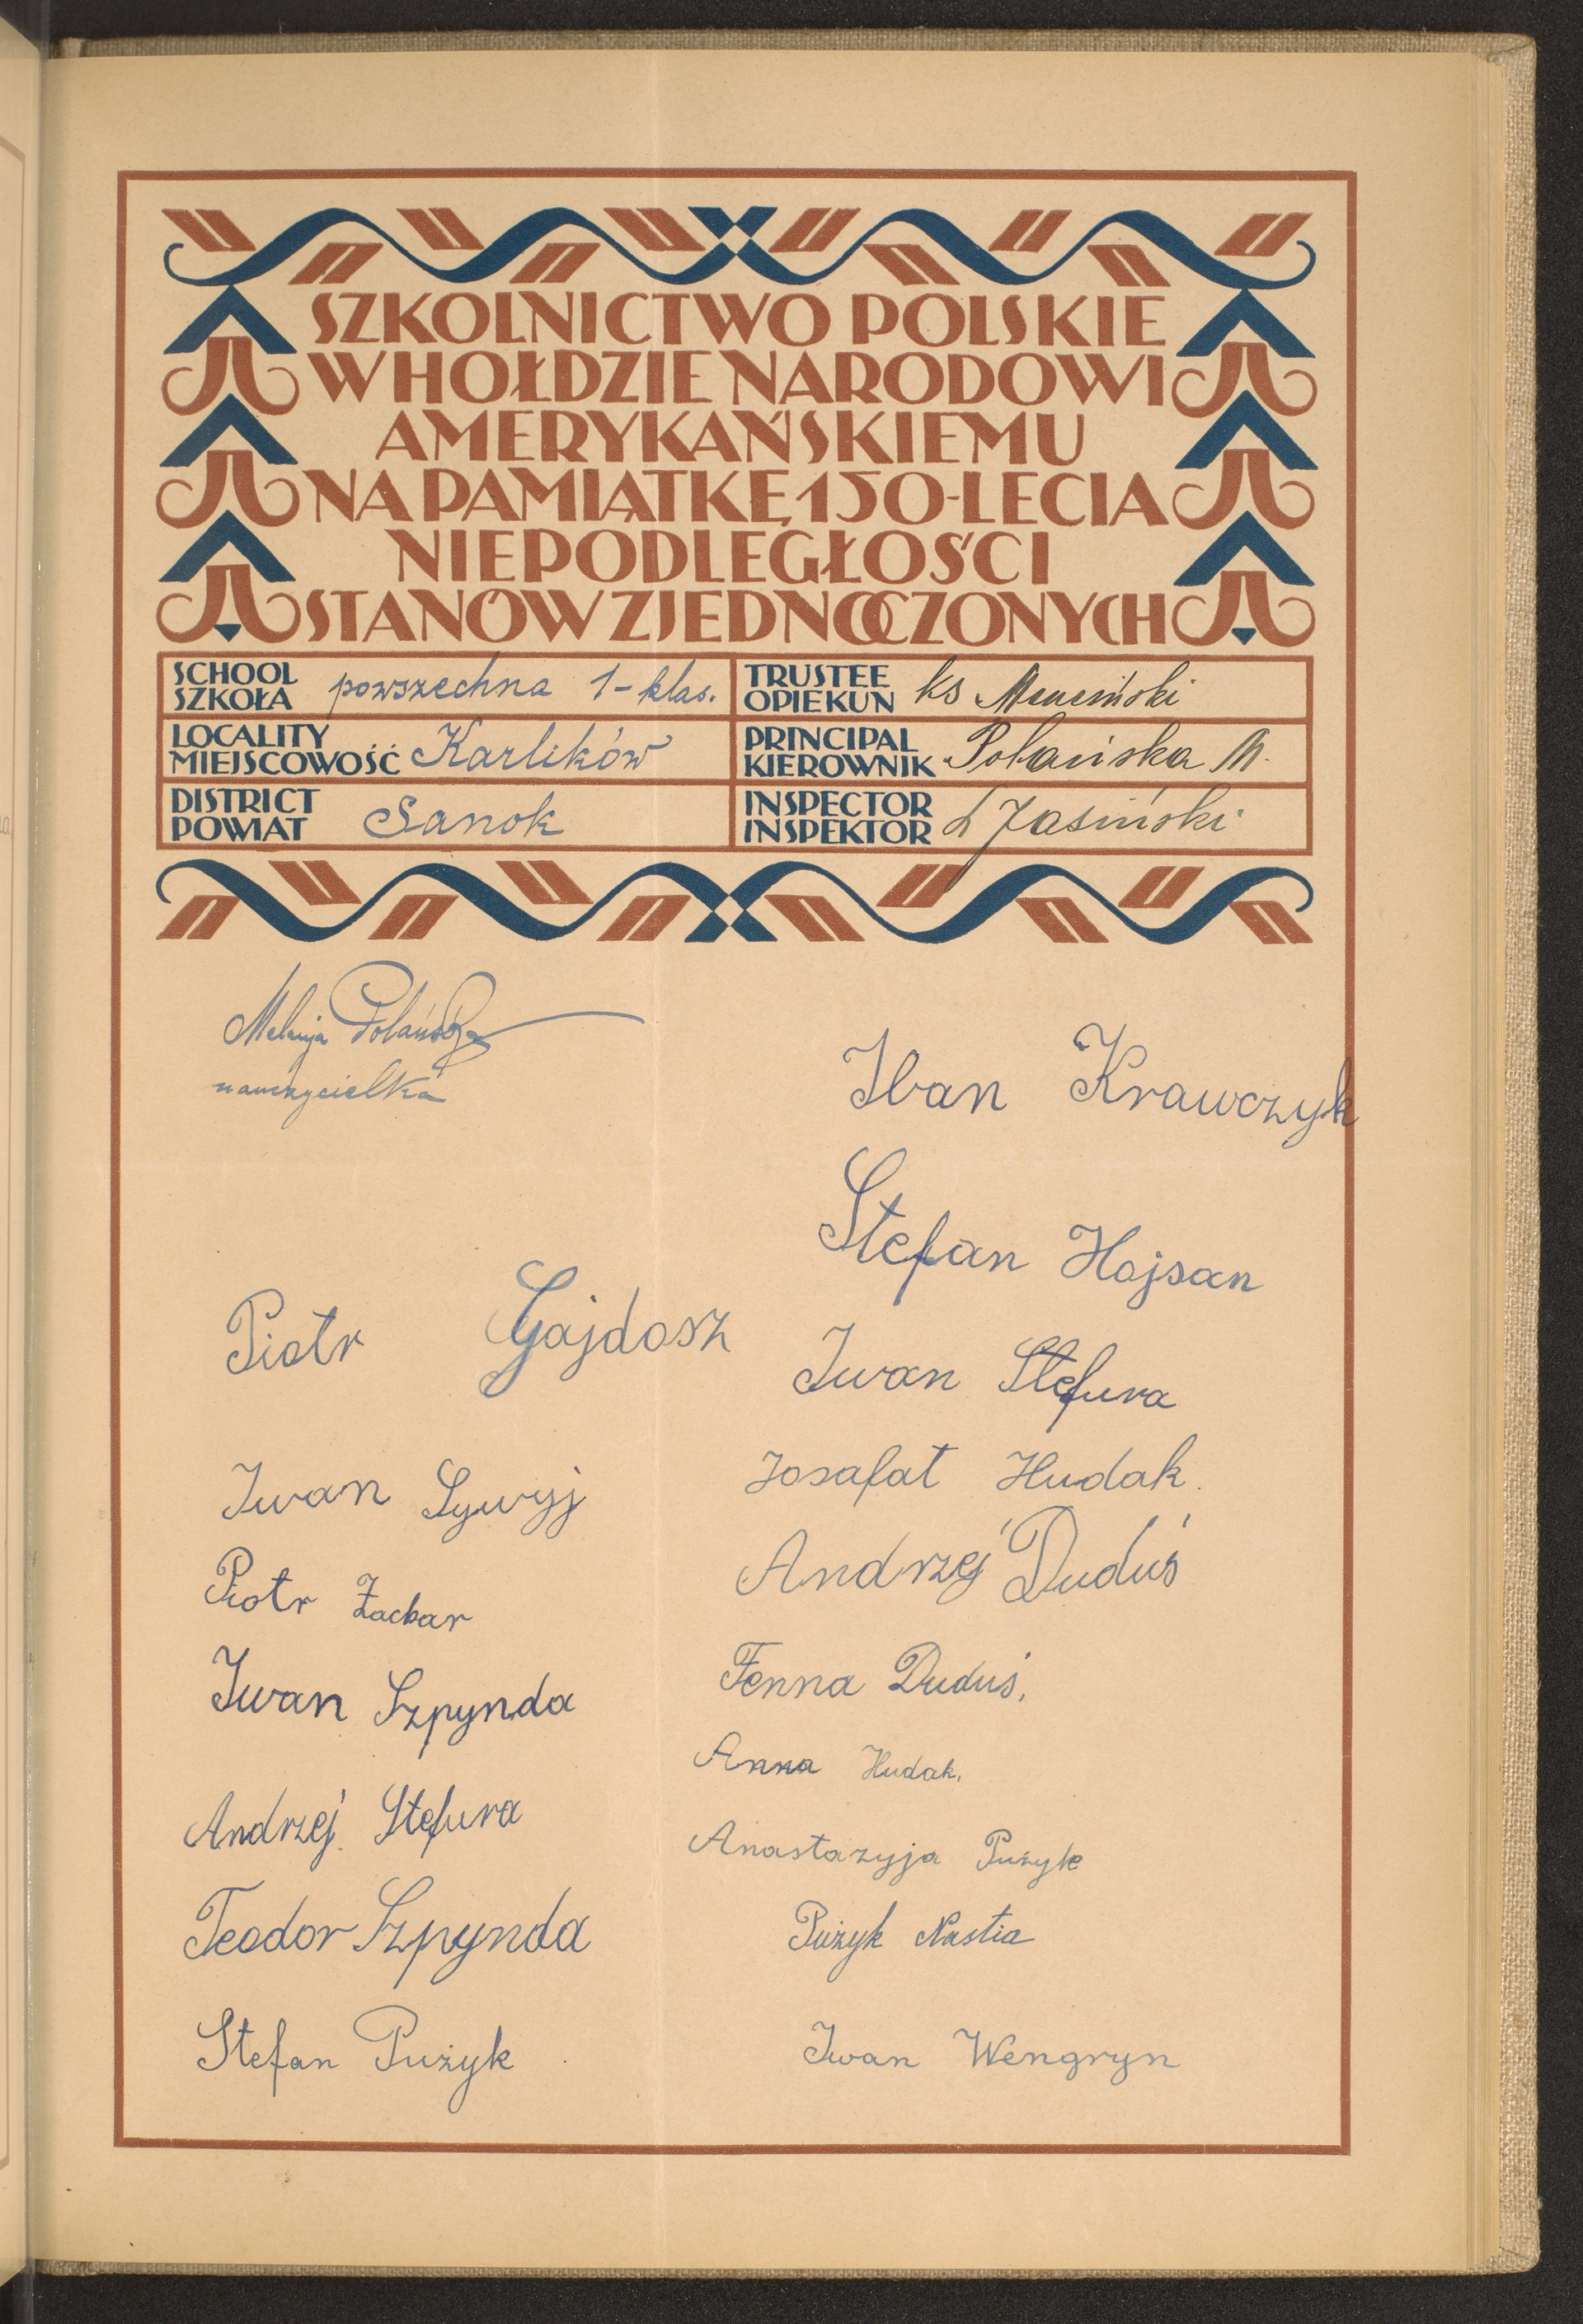 SZKOLNICTWO POLSKIE
W HOŁDZIE NARODOWI
AMERYKAŃSKIEMU
NA PAMIĄTKĘ 150-LECIA
NIEPODLEGŁOŚCI
STANÓW ZJEDNOCZONYCH
SCHOOL
SZKOŁA powszechna 1-klas.
TRUSTEE
OPIEKUN ks
LOCALITY
MIEJSCOWOŚĆ Karlików
PRINCIPAL
KIEROWNIK Polańska M.
DISTRICT
POWIAT Sanok
INSPECTOR
INSPEKTOR Jasiński
Melanja Polańska
nauczycielka
Piotr Gajdosz
Iwan Sywyj
Piotr Zachar
Iwan Szpynda
Andrzej Stefura
Teodor Szpynda
Stefan Pużyk
Iwan Krawczyk
Stefan Hojsan
Iwan Stefura
Josafat Hudak.
Andrzej Duduś
Fenna Duduś,
Anna Hudak,
Anastazyja Pużyk
Pużyk Nastia
Iwan Wengryn